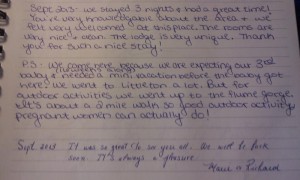 Sept 2013: We stayed 3 nights & had a great time!
You're very knowledgable about the area & we
felt very welcomed at this place. The rooms are
very nice & clean. The lodge is very unique. Thank
you for such a nice stay!
P.S - We came here because we are expecting our 3rd
baby & needed a mini vacation before the baby got
here. We went to Littleton a lot. But for
outdoor activities we went up to the flume gorge.
It's about a 2 mile walk so good outdoor activity
pregnant women can actually do!
Sept. 2013 It was so great to see you all. We will be back
soon. It's always a pleasure.
& Richard